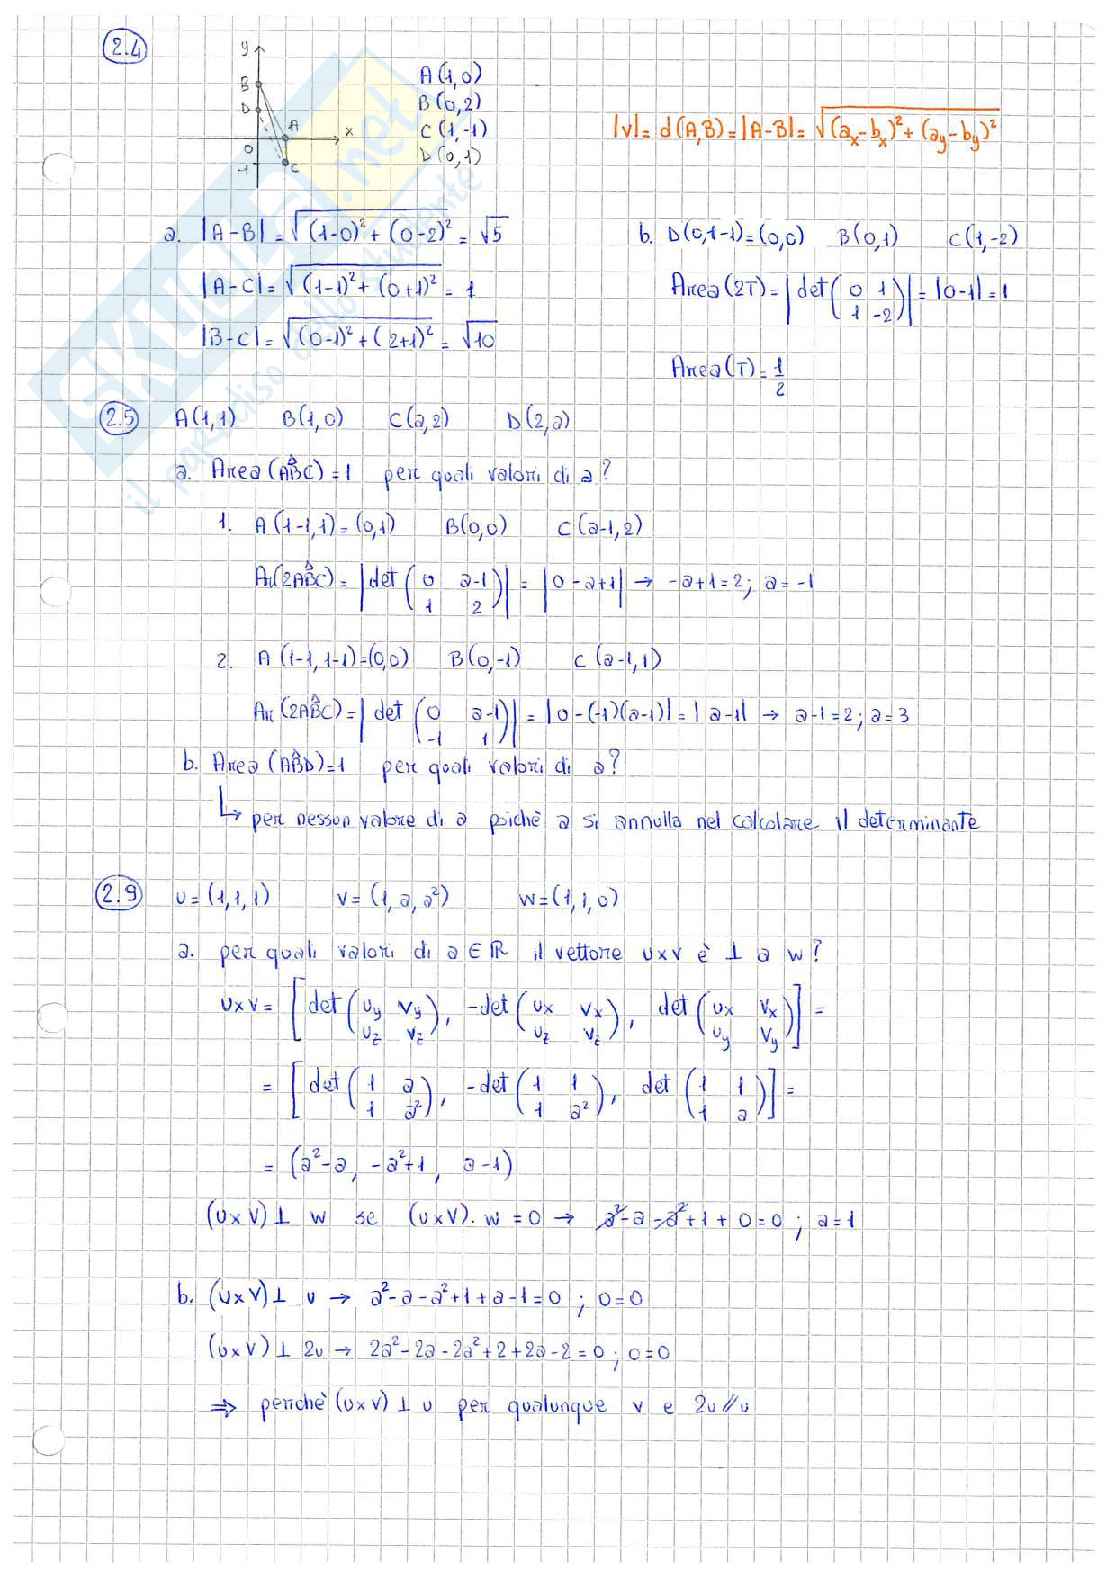 2.4
y
B
D
A
x
0
-1
C
A(1,0)
B(0,2)
C(1,-1)
D(0,1)
|v|= d(A,B)=|A-B|= √((ax-bx)²+(ay-by)²)
a. |A-B|=√((1-0)²+(0-2)²)=√5
|A-C|=√((1-1)²+(0+1)²)=1
|B-C|=√((0-1)²+(2+1)²)=√10
b. D(0,1-1)=(0,0) B(0,1) C(1,-2)
Area(2T)=|det(0 1
1 -2)|=|0-1|=1
Area(T)=1/2
2.5 A(1,1) B(1,0) C(a,2) D(2,a)
a. Area(AB̂C)=1 per quali valori di a?
1. A(1-1,1)=(0,1) B(0,0) C(a-1,2)
Ar(2AB̂C)=|det(0 a-1
1 2)|=|0-a+1| → -a+1=2; a=-1
2. A(1-1,1-1)=(0,0) B(0,-1) C(a-1,1)
Ar(2AB̂C)=|det(0 a-1
-1 1)|=|0-(-1)(a-1)|=|a-1| → a-1=2; a=3
b. Area(AB̂D)=1 per quali valori di a?
↳ per nessun valore di a poichè a si annulla nel calcolare il determinante
2.9 u=(1,1,1) v=(1,a,a²) w=(1,1,0)
a. per quali valori di a∈ℝ il vettore u×v è ⊥ a w?
u×v=[det(uy vy
uz vz), -det(ux vx
uz vz), det(ux vx
uy vy)]=
=[det(1 a
1 a²), -det(1 1
1 a²), det(1 1
1 a)]=
=(a²-a, -a²+1, a-1)
(u×v)⊥ w se (u×v)·w=0 → a²-a-a²+1+0=0; a=1
b. (u×v)⊥ u → a²-a-a²+1+a-1=0; 0=0
(u×v)⊥ 2u → 2a²-2a-2a²+2+2a-2=0; 0=0
⇒ perchè (u×v)⊥u per qualunque v e 2u//u
SKUOLA.net
il paradiso dello studente